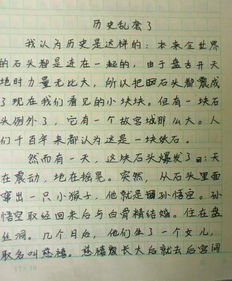 历史乱套了
我认为历史是这样的：本来全世界
的石头都是连在一起的，由于盘古开天
地时力量无比大，所以把石头都震成
了现在我们看见的小块块。但有一块石
头例外了，它有一个故宫城那么大。人
们千百年来都认为这是一块铁石。
然而有一天，这块石头爆发了：天
在震动，地在摇晃。突然，从石头里面
窜出一只小猴子，他就是孙悟空。孙
悟空取经回来后与白骨精结婚。住在盘
丝洞。几个月后，他们生了一个女儿，
取名叫慈禧。慈禧长大后就去后宫间